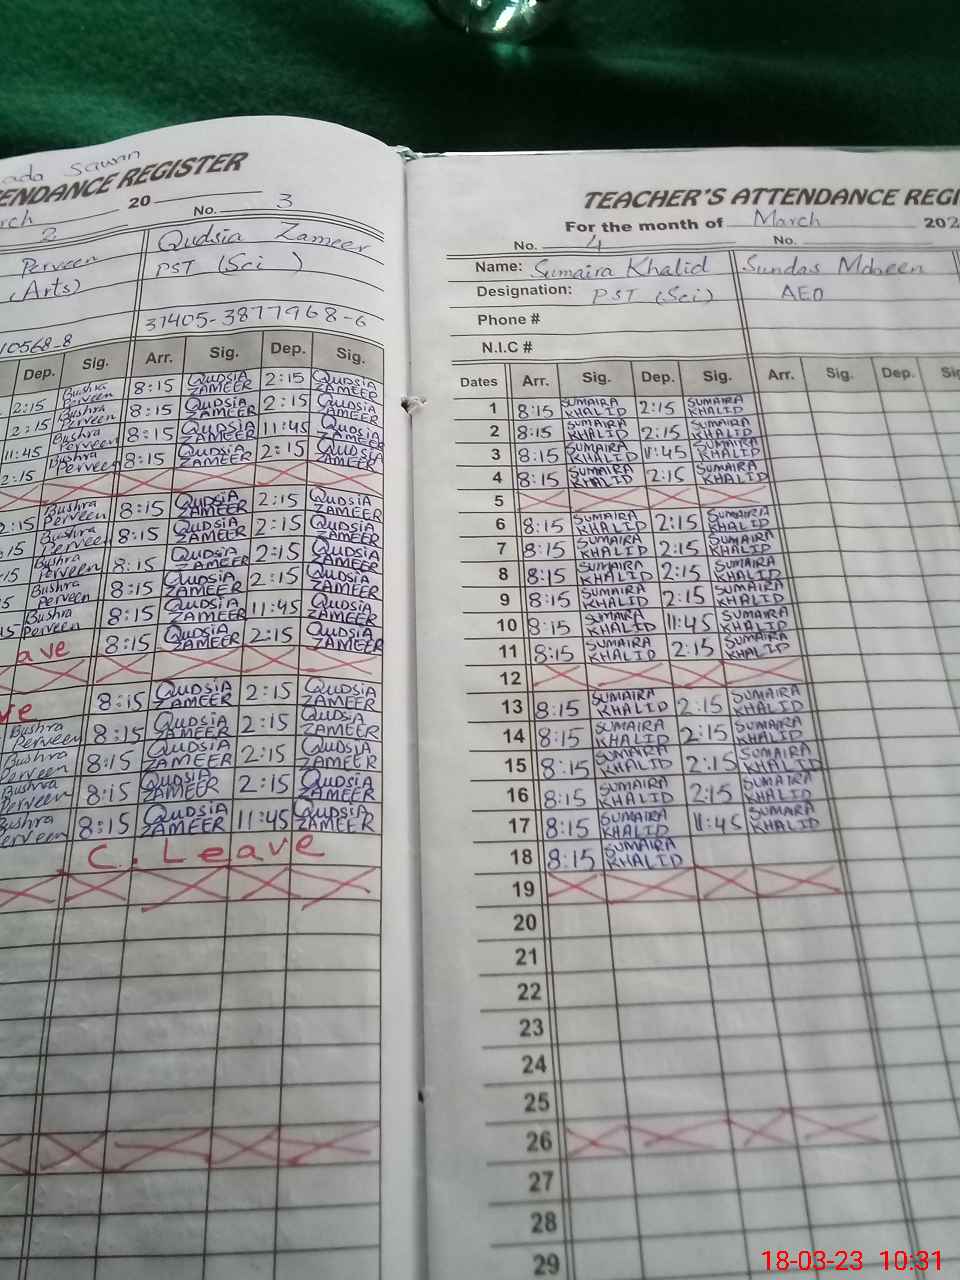 ada Sawan
ENDANCE REGISTER
rch 20 No. 3
2
Perveen Qudsia Zameer
(Arts) PST (Sci )
37405-3877968-6
10568-8
Dep. Sig. Arr. Sig. Dep. Sig.
2:15 Bushra Perveen 8:15 QUDSIA ZAMEER 2:15 QUDSIA ZAMEER
2:15 Bushra Perveen 8:15 QUDSIA ZAMEER 2:15 QUDSIA ZAMEER
11:45 Bushra Perveen 8:15 QUDSIA ZAMEER 11:45 QUDSIA ZAMEER
2:15 Bushra Perveen 8:15 QUDSIA ZAMEER 2:15 QUDSIA ZAMEER
2:15 Bushra Perveen 8:15 QUDSIA ZAMEER 2:15 QUDSIA ZAMEER
:15 Bushra Perveen 8:15 QUDSIA ZAMEER 2:15 QUDSIA ZAMEER
:15 Bushra Perveen 8:15 QUDSIA ZAMEER 2:15 QUDSIA ZAMEER
5 Bushra Perveen 8:15 QUDSIA ZAMEER 2:15 QUDSIA ZAMEER
45 Bushra Perveen 8:15 QUDSIA ZAMEER 11:45 QUDSIA ZAMEER
ave 8:15 QUDSIA ZAMEER 2:15 QUDSIA ZAMEER
ve 8:15 QUDSIA ZAMEER 2:15 QUDSIA ZAMEER
Bushra Perveen 8:15 QUDSIA ZAMEER 2:15 QUDSIA ZAMEER
Bushra Perveen 8:15 QUDSIA ZAMEER 2:15 QUDSIA ZAMEER
Bushra Perveen 8:15 QUDSIA ZAMEER 2:15 QUDSIA ZAMEER
Bushra Perveen 8:15 QUDSIA ZAMEER 11:45 QUDSIA ZAMEER
C. Leave
TEACHER'S ATTENDANCE REGI
For the month of March 202
No. 4 No.
Name: Sumaira Khalid Sundas Mobeen
Designation: PST (Sci) AEO
Phone #
N.I.C #
Dates Arr. Sig. Dep. Sig. Arr. Sig. Dep. Sig
1 8:15 SUMAIRA KHALID 2:15 SUMAIRA KHALID
2 8:15 SUMAIRA KHALID 2:15 SUMAIRA KHALID
3 8:15 SUMAIRA KHALID 11:45 SUMAIRA KHALID
4 8:15 SUMAIRA KHALID 2:15 SUMAIRA KHALID
5
6 8:15 SUMAIRA KHALID 2:15 SUMAIRA KHALID
7 8:15 SUMAIRA KHALID 2:15 SUMAIRA KHALID
8 8:15 SUMAIRA KHALID 2:15 SUMAIRA KHALID
9 8:15 SUMAIRA KHALID 2:15 SUMAIRA KHALID
10 8:15 SUMAIRA KHALID 11:45 SUMAIRA KHALID
11 8:15 SUMAIRA KHALID 2:15 SUMAIRA KHALID
12
13 8:15 SUMAIRA KHALID 2:15 SUMAIRA KHALID
14 8:15 SUMAIRA KHALID 2:15 SUMAIRA KHALID
15 8:15 SUMAIRA KHALID 2:15 SUMAIRA KHALID
16 8:15 SUMAIRA KHALID 2:15 SUMAIRA KHALID
17 8:15 SUMAIRA KHALID 11:45 SUMARA KHALID
18 8:15 SUMAIRA KHALID
19
20
21
22
23
24
25
26
27
28
29
18-03-23 10:31